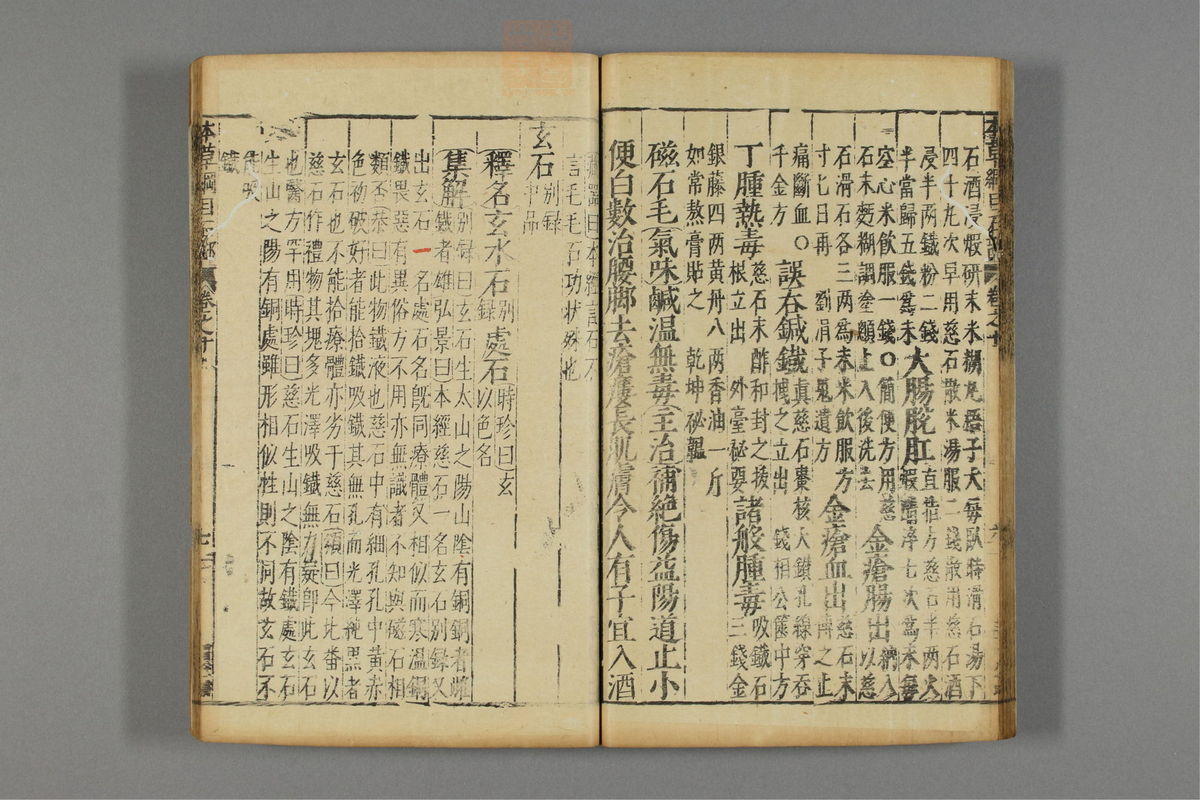 石酒浸煅研末米糊丸梧子大每臥時滑石湯下
四十九次早用慈石散米湯服二錢散用慈石酒
浸半兩鐵粉二錢
半當歸五錢爲末
大腸脫肛
直指方慈石半兩火
煅醋淬七次爲末每
空心米飲服一錢○簡便方用慈
石末麪糊調塗顖上入後洗去
金瘡腸出
納入以慈
石滑石各三两爲末米飲服方
寸七日再 劉涓子鬼遺方
金瘡血出
慈石末
傅之止
痛斷血○
千金方
誤吞鍼鐵
真慈石棗核大鑽孔線穿吞
拽之立出 錢相公篋中方
丁腫熱毒
慈石末酢和封之拔
根立出 外臺秘要
諸般腫毒
吸鐵石
三錢金
銀藤四两黄丹八两香油一斤
如常熬膏貼之 乾坤秘韞
磁石毛氣味鹹温無毒主治補絶傷益陽道止小
便白數治腰脚去瘡瘻長肌膚令人有子宜入酒
藏器曰本經言石不
言毛毛石功狀殊也
玄石
別録
中品
釋名玄水石
別
録
處石
時珍曰玄
以色名
集解
別録曰玄石生太山之陽山陰有銅銅者雌
鐵者雄弘景曰本經慈石一名玄石別録又
出玄石一名處石名既同療體又相似而寒温銅
鐵畏惡有異俗方不用亦無識者不知與磁石相
類否恭曰此物鐵液也慈石中有細孔孔中黄赤
色初破好者能拾鐵吸鐵其無孔而光澤純黒者
玄石也不能拾療體亦劣于慈石頌曰今北番以
慈石作禮物其塊多光澤吸鐵無力疑卽此玄石
也醫方罕用時珍曰慈石生山之陰有鐵處玄石
生山之陽有銅處雖形相似性則不同故玄石不
能吸
鐵
本草綱目石部
卷之十
六
本草綱目石部
卷之十
七